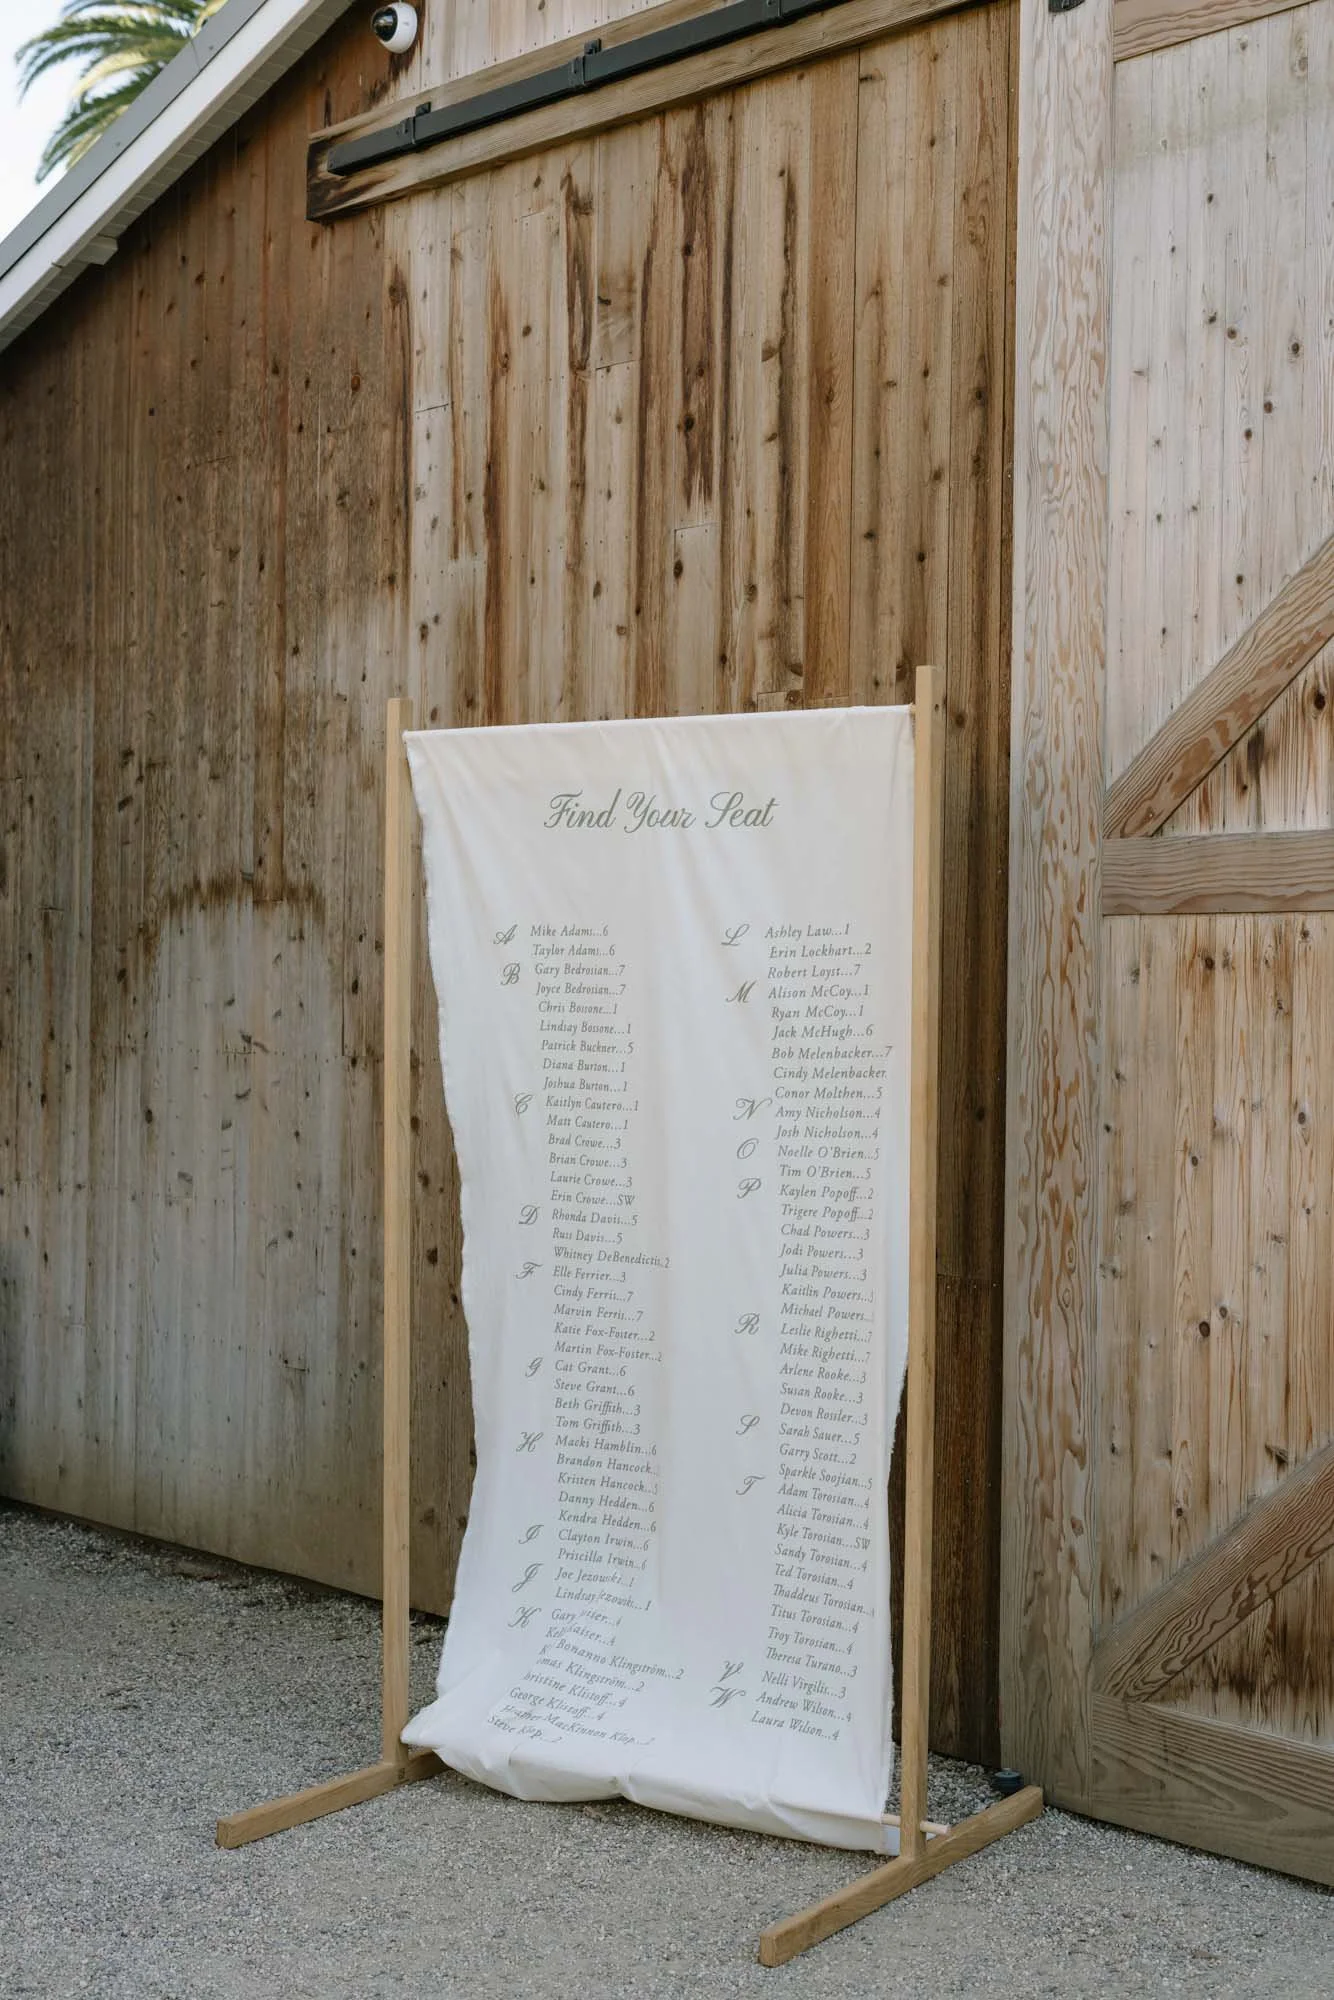 Find Your Seat
A Mike Adams...6
Taylor Adams...6
B Gary Bedrosian...7
Joyce Bedrosian...7
Chris Bossone...1
Lindsay Bossone...1
Patrick Buckner...5
Diana Burton...1
Joshua Burton...1
C Kaitlyn Cautero...1
Matt Cautero...1
Brad Crowe...3
Brian Crowe...3
Laurie Crowe...3
Erin Crowe...SW
D Rhonda Davis...5
Russ Davis...5
Whitney DeBenedictis..2
F Elle Ferrier...3
Cindy Ferris...7
Marvin Ferris...7
Katie Fox-Foster...2
Martin Fox-Foster...2
G Cat Grant...6
Steve Grant...6
Beth Griffith...3
Tom Griffith...3
H Macki Hamblin...6
Brandon Hancock..
Kristen Hancock...5
Danny Hedden...6
Kendra Hedden...6
I Clayton Irwin...6
Priscilla Irwin..6
J Joe Jezowski...1
Lindsay Jezowski...1
K Gary
Kaiser...4
Bonanno Klingström...2
Klingström...2
Klistoff...4
George Klistoff...4
Heather MacKinnon Klop...2
Steve Klop...2
L Ashley Law...1
Erin Lockhart...2
Robert Loyst...7
M Alison McCoy...1
Ryan McCoy...1
Jack McHugh...6
Bob Melenbacker...7
Cindy Melenbacker
Conor Molthen...5
N Amy Nicholson...4
Josh Nicholson...4
O Noelle O'Brien...5
Tim O'Brien...5
P Kaylen Popoff...2
Trigere Popoff...2
Chad Powers...3
Jodi Powers...3
Julia Powers...3
Kaitlin Powers...3
Michael Powers...
R Leslie Righetti...7
Mike Righetti...7
Arlene Rooke...3
Susan Rooke...3
Devon Rossler...3
S Sarah Sauer...5
Garry Scott...2
Sparkle Soojian...5
T Adam Torosian...4
Alicia Torosian...4
Kyle Torosian...SW
Sandy Torosian...4
Ted Torosian...4
Thaddeus Torosian...4
Titus Torosian...4
Troy Torosian...4
Theresa Turano...3
V Nelli Virgilis...3
W Andrew Wilson...4
Laura Wilson...4